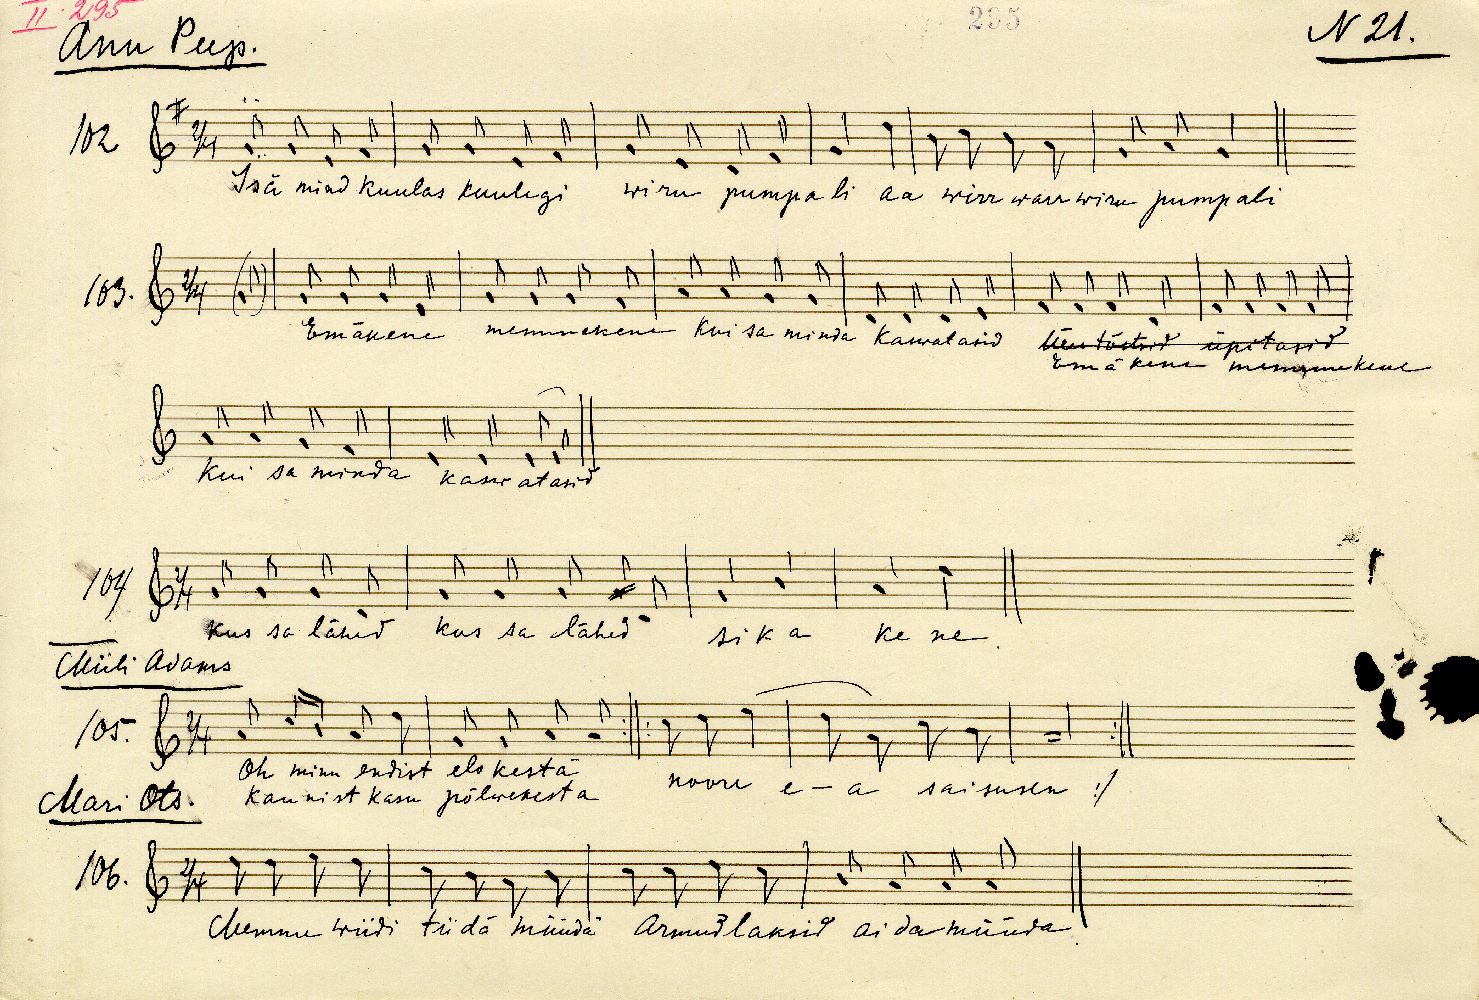 II. 295
295
Anu Peep.
N 21.
102
Isä mind kuulas kuulegi wiru pumpali aa wirr warr wiru pumpali
103.
Emäkene memmekene kui sa minda kaswatasid üpitasid
Emäkene memmekene
kui sa minda kaswatasid
104
kus sa lähed kus sa lähed sika kene
Miili Adams
105.
Oh minu endist elokestä noore e-a saisusen :/
kaunist kasu põlwekesta
Mari Ots.
106.
Memme wiidi tiidä müüdä Armud laksid aida müüda